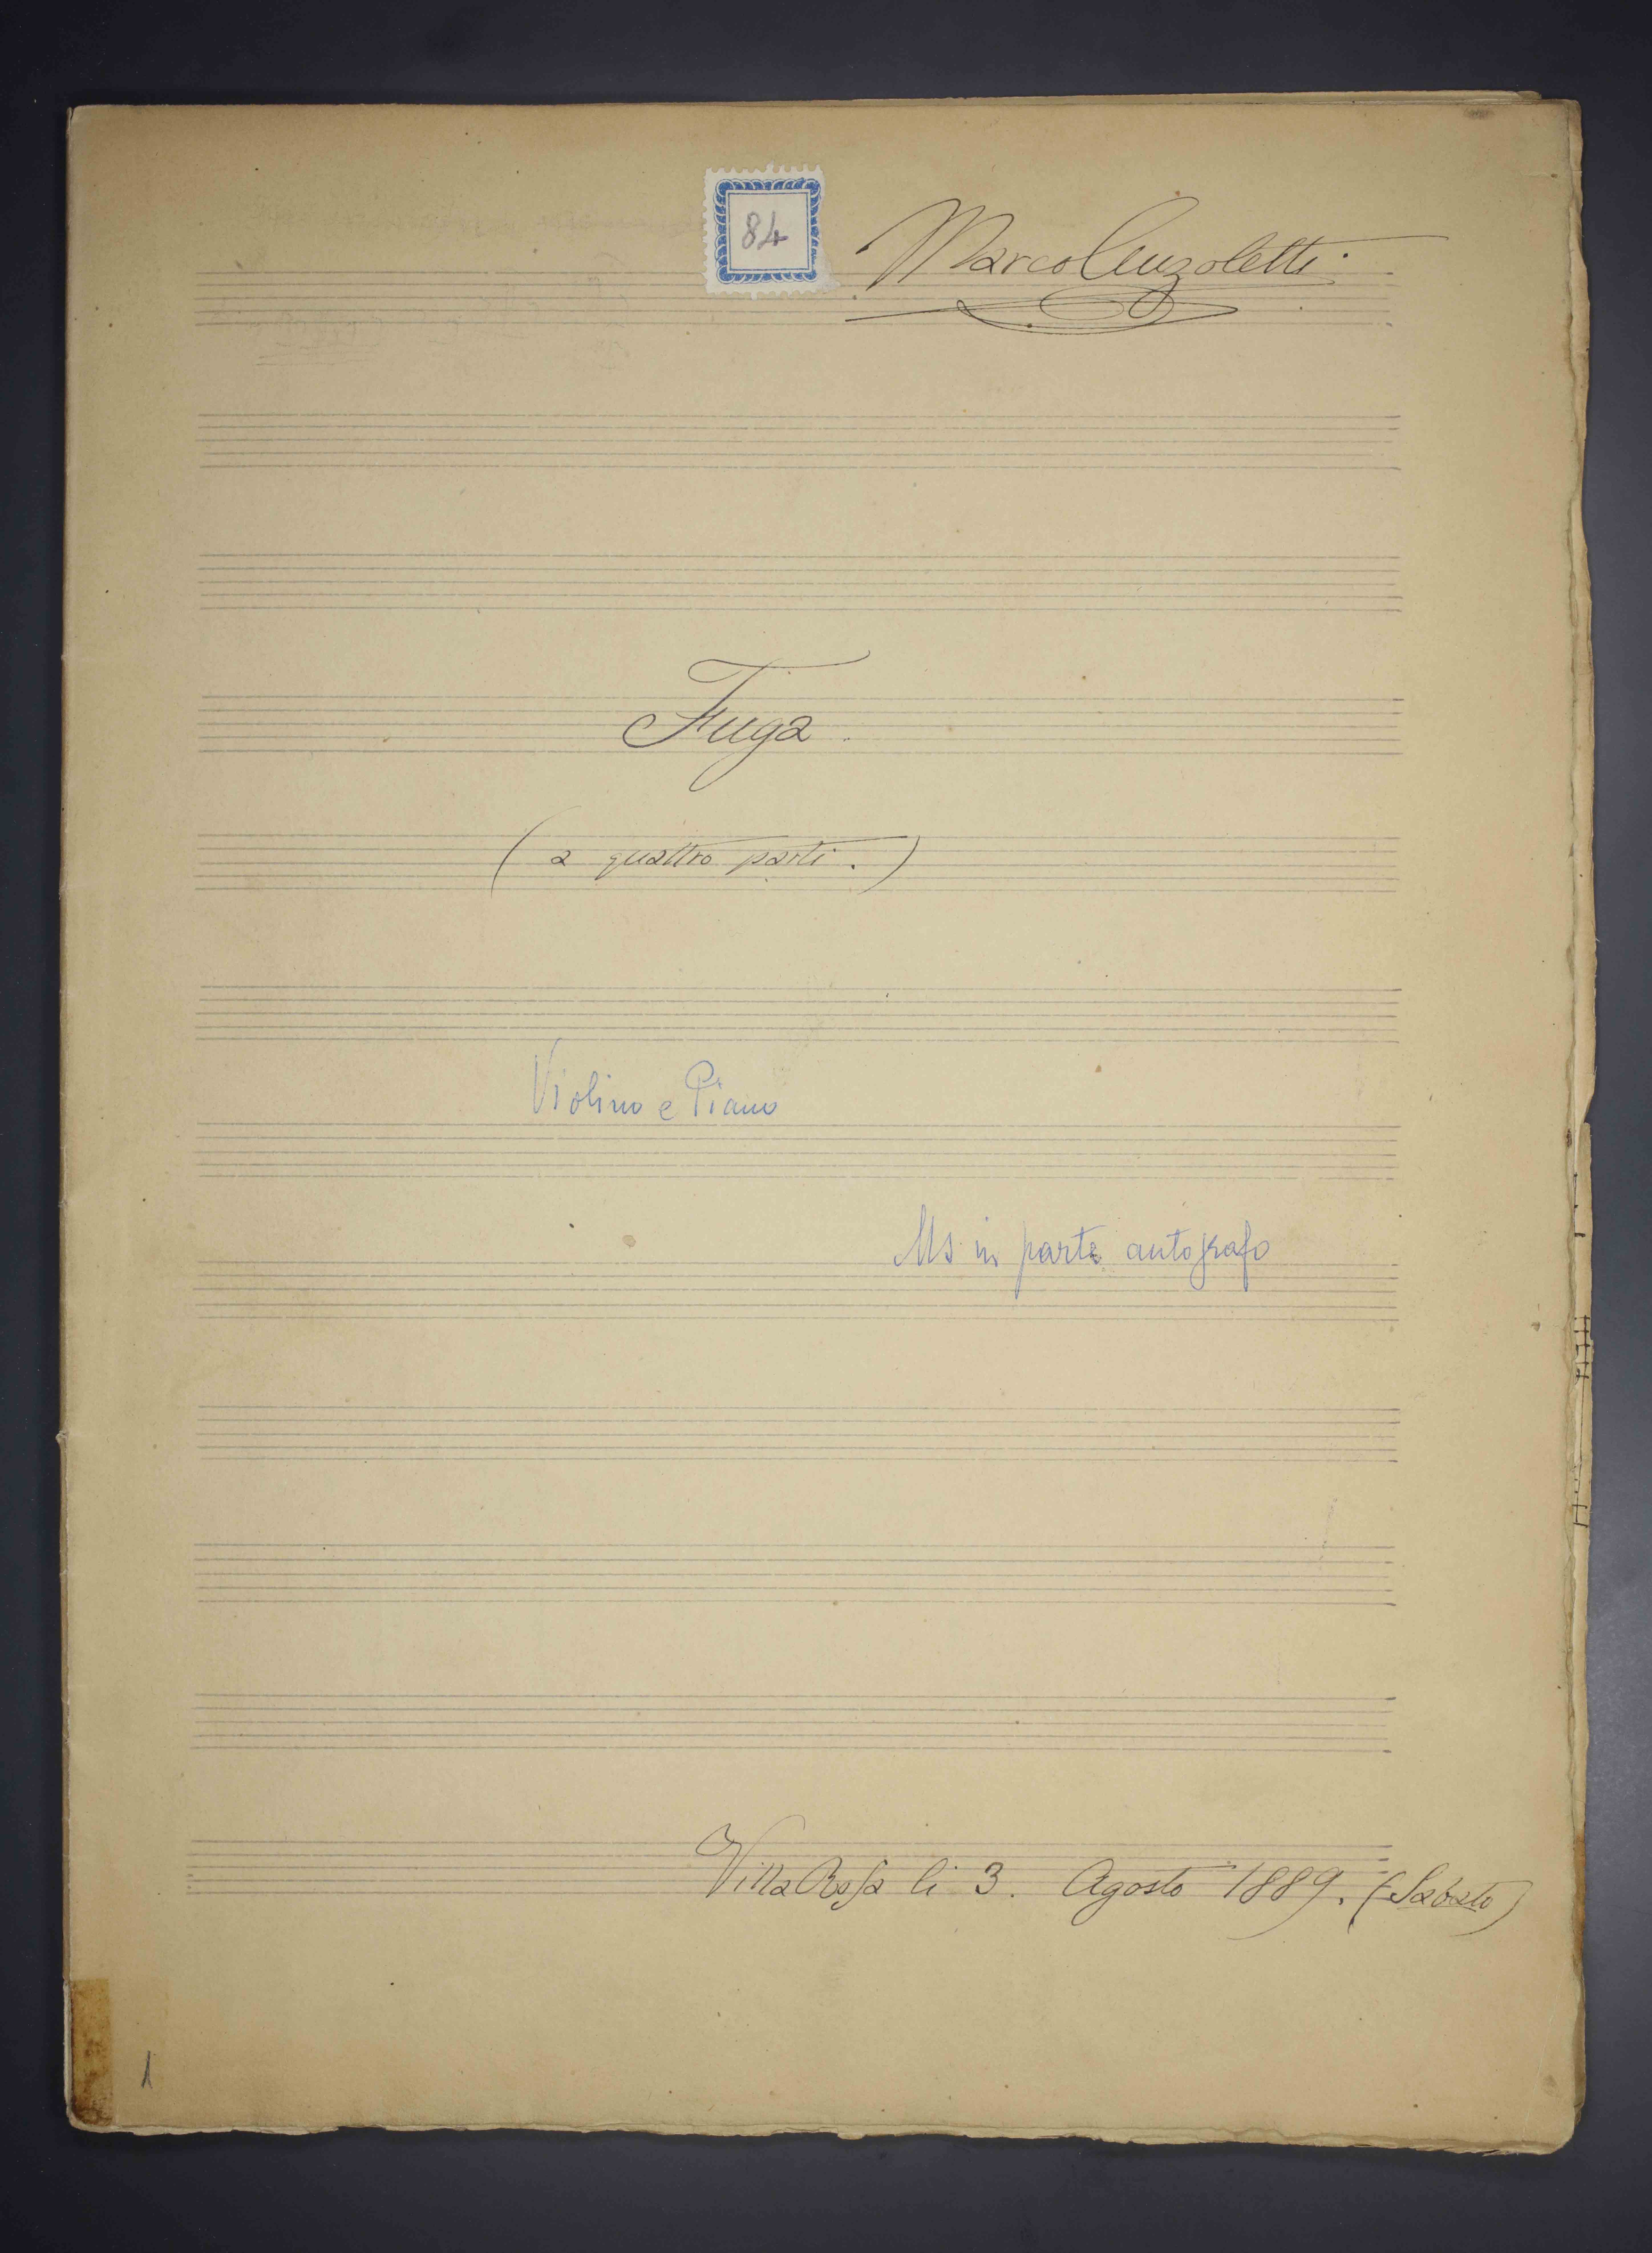 84
Marco Anzoletti.
Fuga.
(a quattro parti.)
Violino e Piano
Ms in parte autografo
Villa Rosa li 3. Agosto 1889. (Sabato)
1